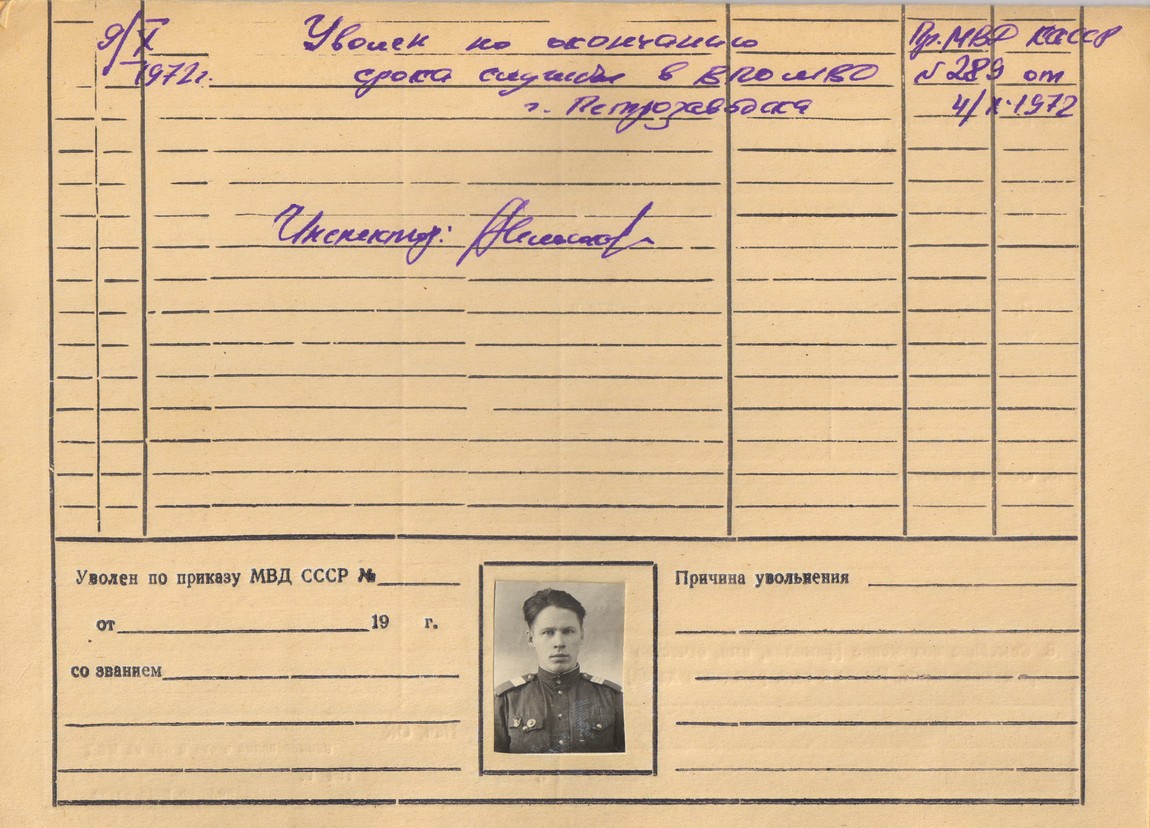 9/X Уволен по окончанию Пр. МВД КАССР
1972г. срока службы в ВПО МВД № 289 от
г. Петрозаводска 4/X-1972
Инспектор:
Уволен по приказу МВД СССР №
от 19 г.
со званием
Причина увольнения